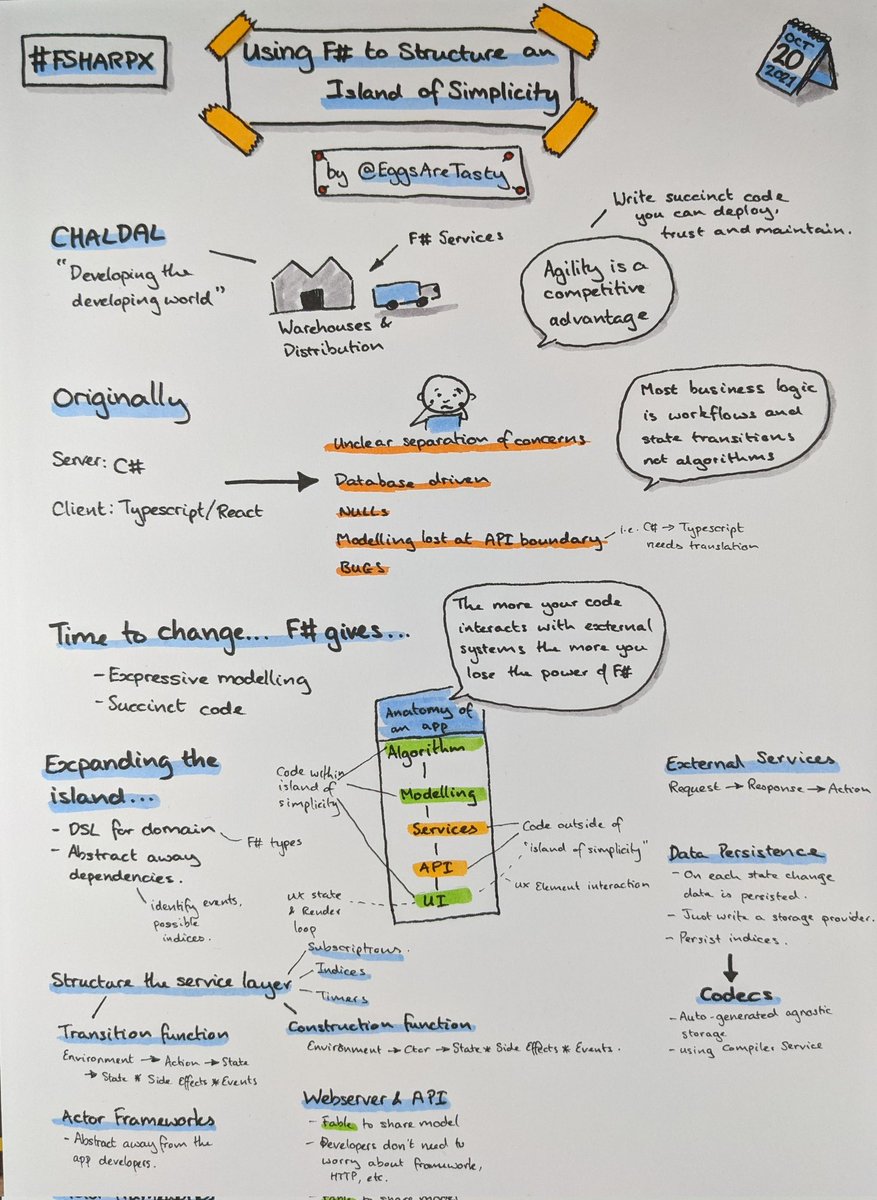 #FSHARPX
Using F# to Structure an
Island of Simplicity
OCT
20
2021
by @EggsAreTasty
CHALDAL
"Developing the
developing world"
Warehouses &
Distribution
F# Services
Write succinct code
you can deploy,
trust and maintain.
Agility is a
competitive
advantage
Originally
Server: C#
Client: Typescript/React
Unclear separation of concerns
Database driven
NULLs
Modelling lost at API boundary
i.e. C# → Typescript
needs translation
BUGS
Most business logic
is workflows and
state transitions
not algorithms
Time to change... F# gives...
- Expressive modelling
- Succinct code
The more your code
interacts with external
systems the more you
lose the power of F#
Expanding the
island...
- DSL for domain
F# types
- Abstract away
dependencies.
identify events,
possible
indices.
Anatomy of
an app
Algorithm
Modelling
Services
API
UI
Code within
island of
simplicity
Code outside of
"island of simplicity"
UX Element interaction
UX state
& Render
loop
External Services
Request → Response → Action
Data Persistence
- On each state change
data is persisted.
- Just write a storage provider.
- Persist indices.
Codecs
- Auto-generated agnostic
storage
- using Compiler Service
Structure the service layer
Subscriptions.
Indices
Timers
Transition function
Environment → Action → State
→ State * Side Effects * Events
Construction function
Environment → Ctor → State * Side Effects * Events.
Actor Frameworks
- Abstract away from the
app developers.
Webserver & API
- Fable to share model
- Developers don't need to
worry about framework,
HTTP, etc.
Actor Frameworks
- Fable to share model